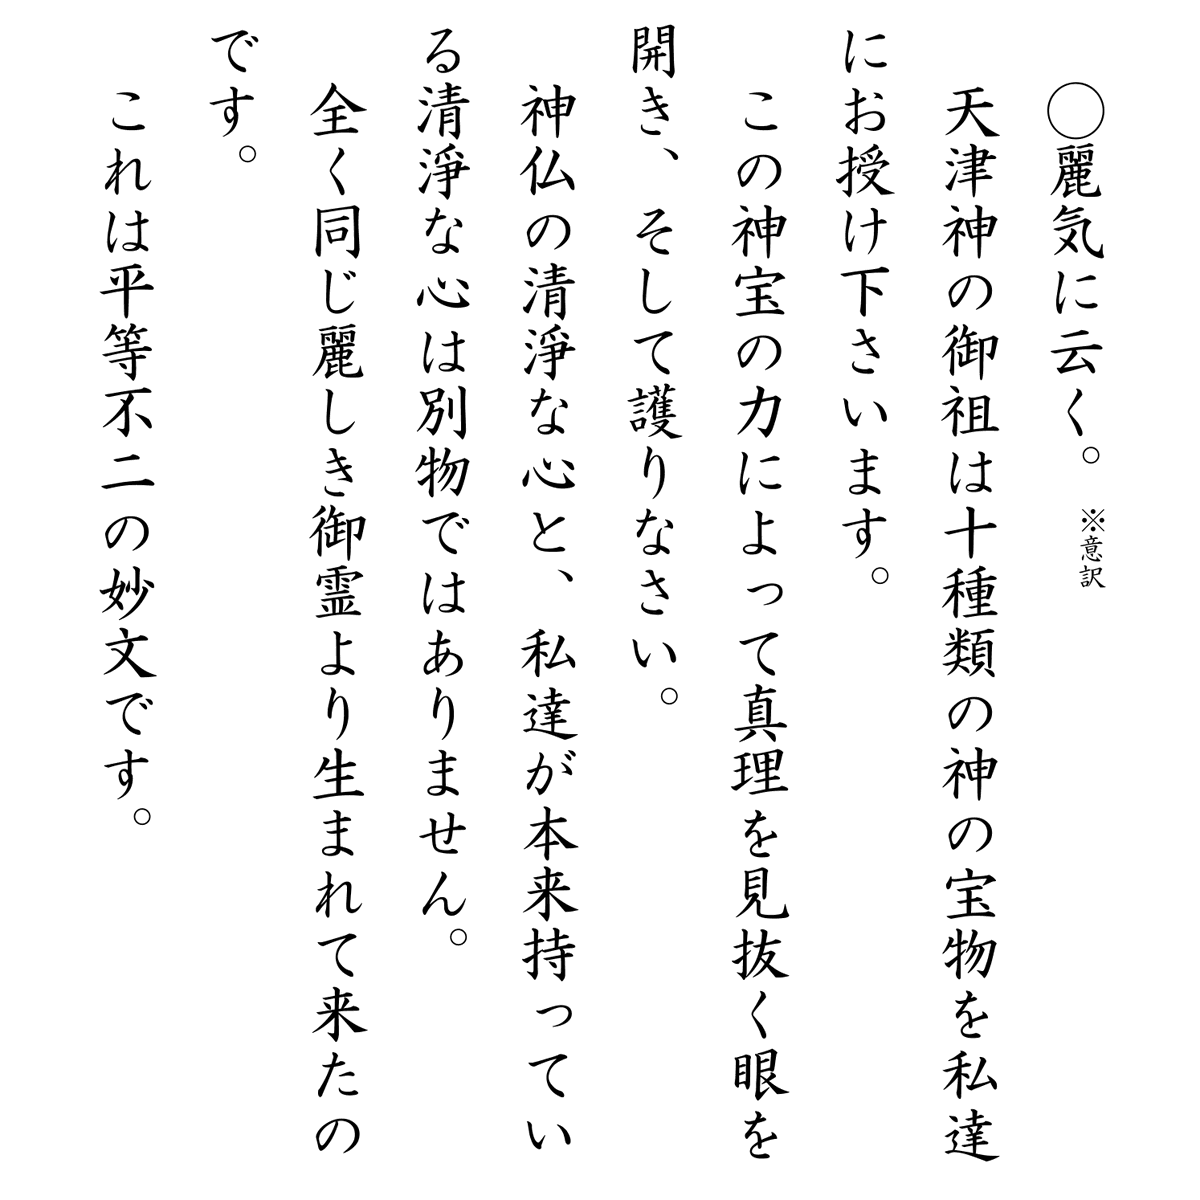 ◯麗気に云く。 ※意訳
天津神の御祖は十種類の神の宝物を私達
にお授け下さいます。
この神宝の力によって真理を見抜く眼を
開き、そして護りなさい。
神仏の清淨な心と、私達が本来持ってい
る清淨な心は別物ではありません。
全く同じ麗しき御霊より生まれて来たの
です。
これは平等不二の妙文です。